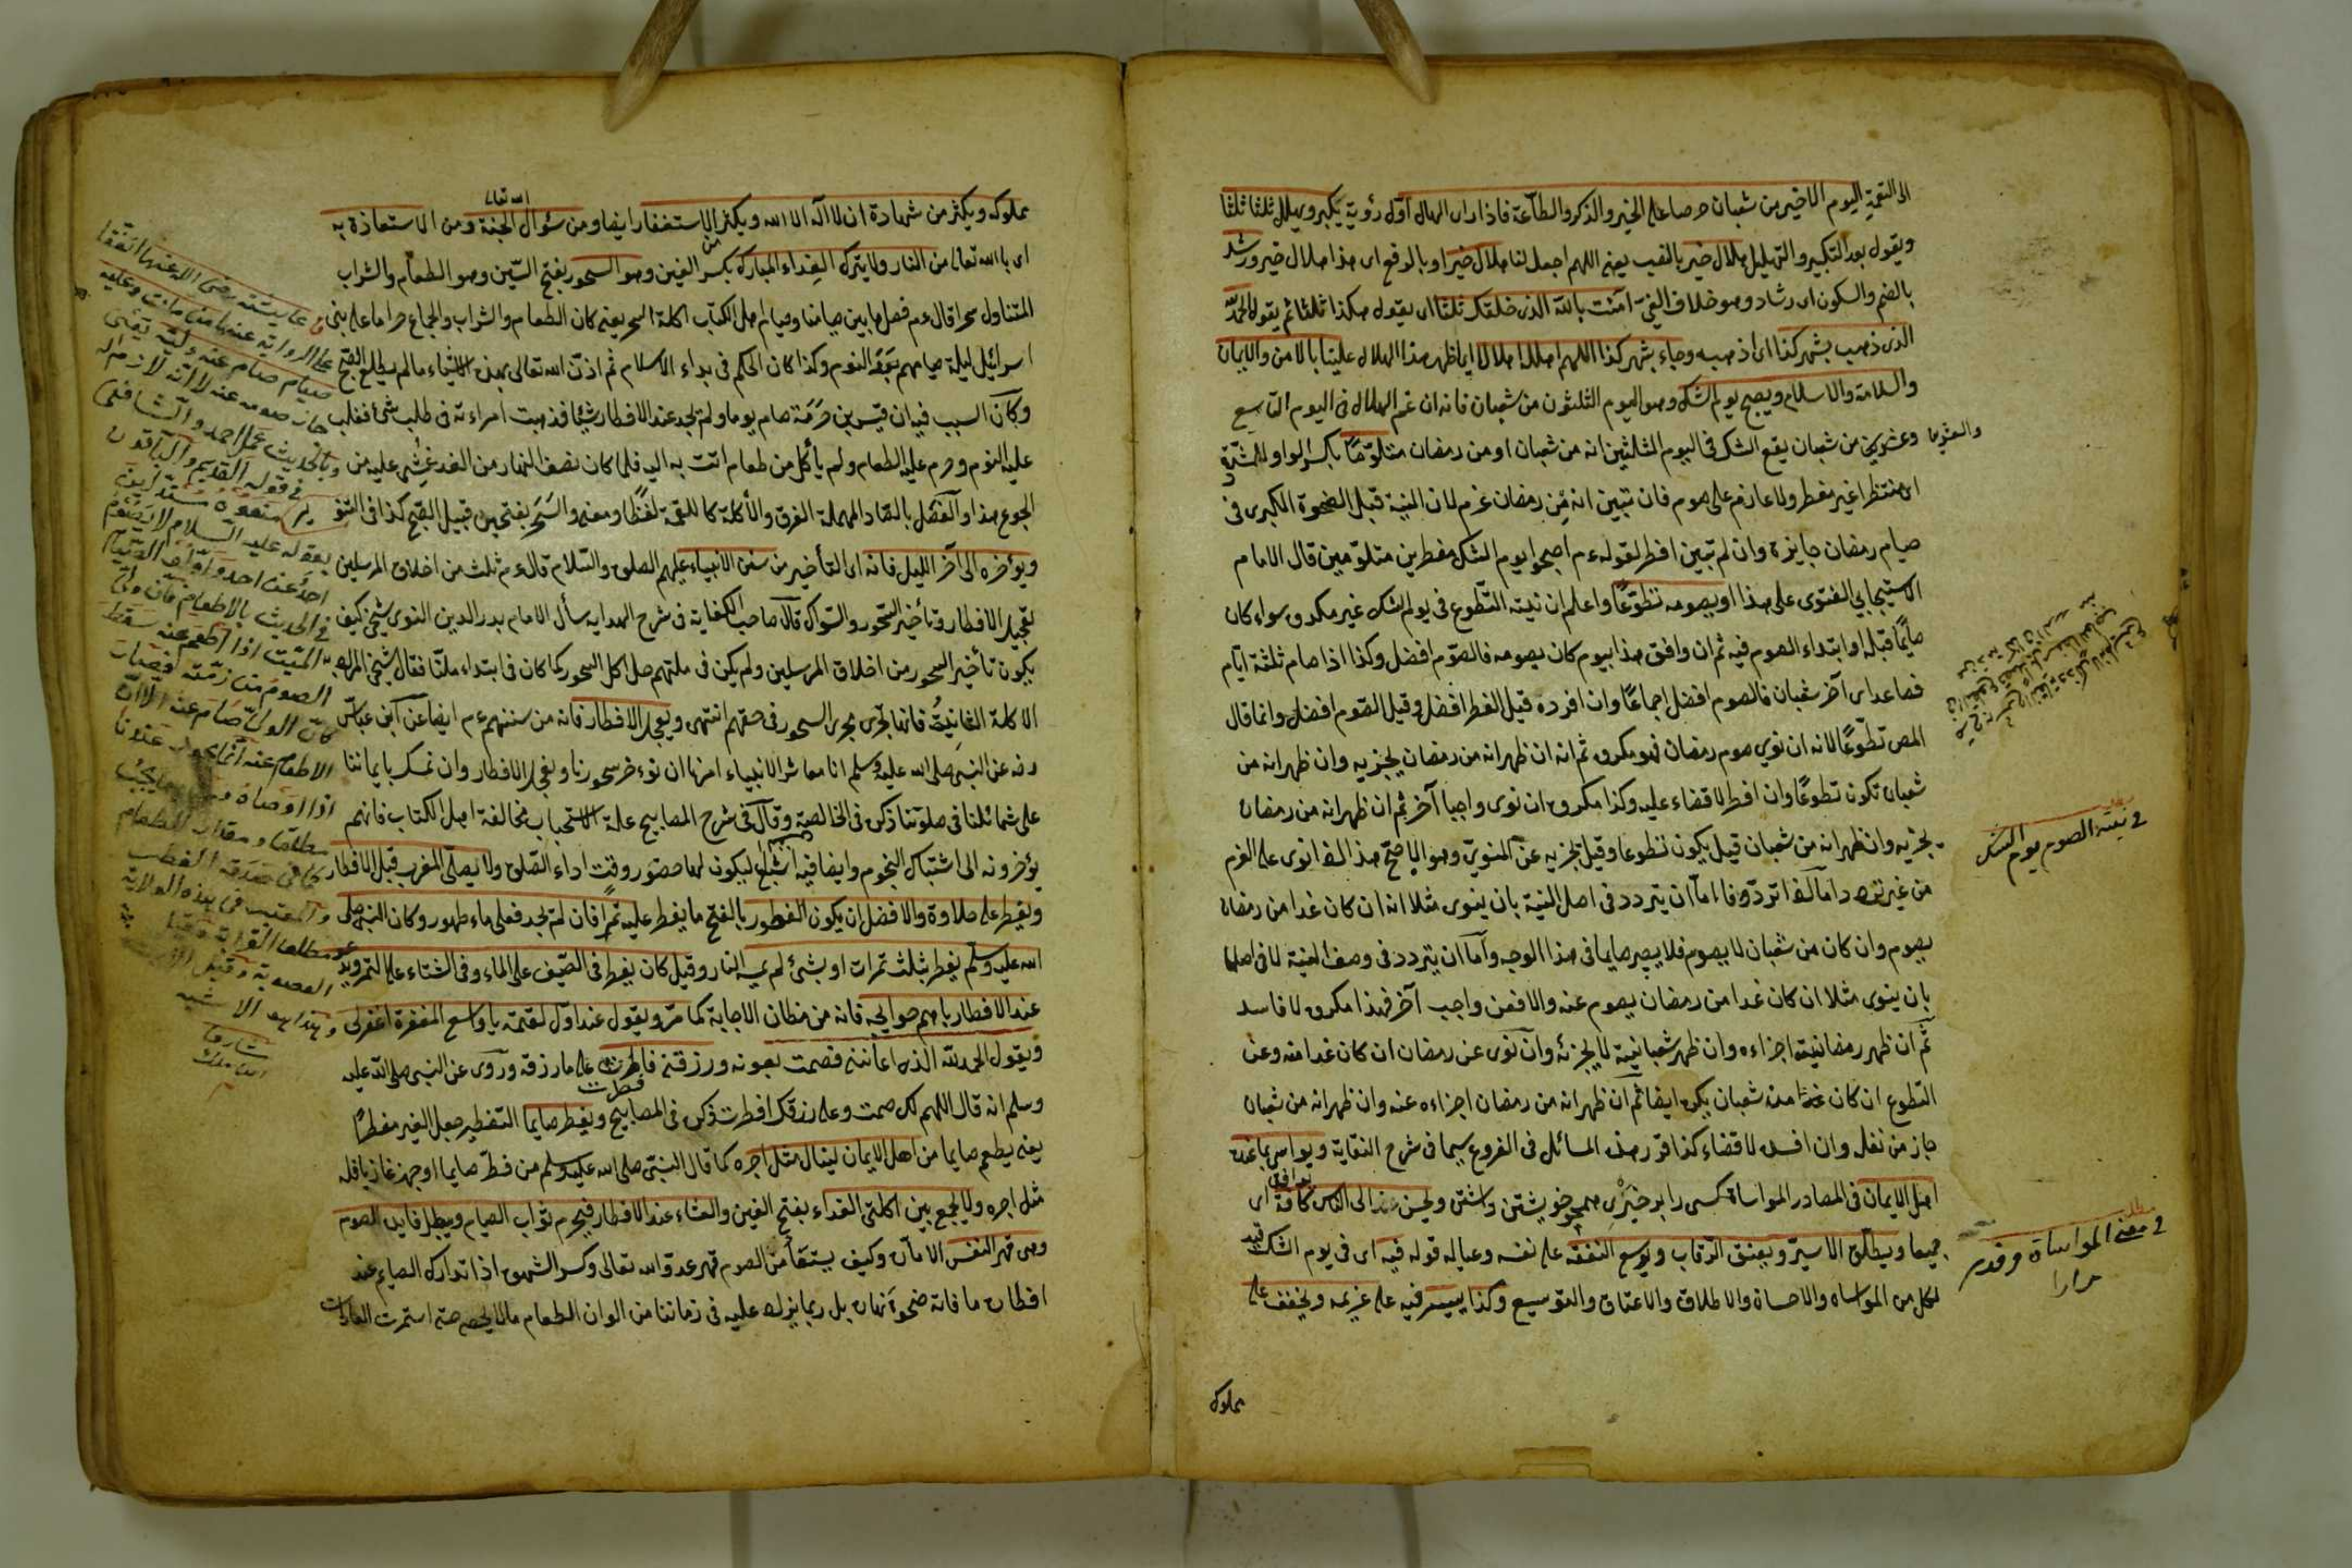 الى التتمة اليوم الاخير من شعبان حرصا على الخير والذكر والطاعة فاذا راى الهلال اول رؤية يكبر ويهلل ثلثا ثلثا
ويقول بعد التكبير والتهليل هلال خير بالنصب يعنى اللهم اجعل لنا هلال خير او بالرفع اى هذا هلال خير ورشد
بالضم والسكون اى رشاد وهو خلاف الغى آمنت بالله الذى خلقك ثلثا اى يقول هكذا ثلثا ثم يقول الحمد لله
الذى ذهب بشهر كذا اى اذهبه وجاء بشهر كذا اللهم اهلل اهلالا اى اظهر هذا الهلال علينا بالامن والايمان
والسلامة والاسلام ويصبح يوم الشك وهو اليوم الثلثون من شعبان فانه ان غم الهلال فى اليوم التاسع
وعشرين من شعبان يقع الشك فى اليوم الثلثين انه من شعبان او من رمضان متلوما بكسر الواو المشددة
اى منتظرا غير مفطر ولا عازم على صوم فان تبين انه من رمضان عزم لان النية قبل الضحوة الكبرى فى
صيام رمضان جايزة وان لم تبين افطر لقوله عم اصبحوا يوم الشك مفطرين متلومين قال الامام
الاسبيجابى الفتوى على هذا او يصومه تطوعا واعلم ان نية التطوع فى يوم الشك غير مكروه سواء كان
صائما قبله او ابتداء الصوم فيه ثم ان وافق هذا بيوم كان يصومه فالصوم افضل وكذا اذا صام ثلثة ايام
فصاعدا اى آخر شعبان فالصوم افضل اجماعا وان افرده قيل الفطر افضل وقيل الصوم افضل وانما قال
المص تطوعا لانه ان نوى صوم رمضان فهو مكروه ثم انه ان ظهر انه من رمضان يجزيه وان ظهر انه من
شعبان تكون تطوعا وان افطر لا قضاء عليه وكذا مكروه ان نوى واجبا آخر ثم ان ظهر انه من رمضان
يجزيه وان ظهر انه من شعبان قيل يكون تطوعا وقيل يجزيه عن المنوى وهو الاصح هذا اذا نوى على العزم
من غير تردد اما اذا تردد فاما ان يتردد فى اصل النية بان ينوى مثلا انه ان كان غدا من رمضان
يصوم وان كان من شعبان لا يصوم فلا يصير صايما فى هذا الوجه واما ان يتردد فى وصف النية لا فى اصلها
بان ينوى مثلا ان كان غدا من رمضان يصوم عنه والا فعن واجب آخر فهذا مكروه لا فاسد
ثم ان ظهر رمضانيته اجزاءه وان ظهر شعبانيته لا يجزئه وان نوى عن رمضان ان كان غدا منه وعن
التطوع ان كان غدا من شعبان يكره ايضا ثم ان ظهر انه من رمضان اجزاءه عنه وان ظهر انه من شعبان
جاز من نفل وان افسده لا قضاء كذا قرر هذه المسائل فى الفروع سيما فى شرح النقاية ويواسى بما عنده
اهل الايمان فى المصادر المواساة كسى را بر خيرى همچو خويشتن داشتن ويحسن فيه الى الناس كافة اى
جميعا ويطلق الاسير ويعتق الرقاب ويوسع النفقة على نفسه وعياله قوله فيه اى فى يوم الشك قيد
لكل من المواساة والاحسان والاطلاق والاعتاق والتوسيع وكذا ييسر فيه على غريمه ويخفف على
مملوكه
والعشرين
فى نية الصوم يوم الشك
مطلب
فى معنى المواساة وقد مر
مرارا
مملوكه ويكثر من شهادة ان لا اله الا الله ويكثر الاستغفار ايضا ومن سؤال الجنة ومن الاستعاذة به
الله تعالى
اى بالله تعالى من النار ولا يترك الغداء المبارك بكسر الغين وهو السحور بفتح السين وهو الطعام والشراب
المتناول سحرا قال عم فصل ما بين صيامنا وصيام اهل الكتاب اكلة السحر يعنى كان الطعام والشراب والجماع حراما على بنى
اسرائيل ليلة صيامهم بعد النوم وكذا كان الحكم فى بداء الاسلام ثم اذن الله تعالى بهذه الاشياء مالم يطلع الصبح
وكان السبب فيه ان قيس بن صرمة صام يوما ولم يجد عند الافطار شيئا فذهبت امراءته فى طلب شئ فغلب
عليه النوم وحرم عليه الطعام ولم يأكل من طعام اتت به اليه فلما كان نصف النهار من الغد غشى عليه من
الجوع هذا والفصل بالصاد المهملة الفرق والاكلة كاللقمة لفظا ومعنى والسحر بفتحين قبيل الصبح كذا فى التنوير
ويؤخره الى آخر الليل فانه اى التأخير من سنن الانبياء عليهم الصلوة والسلام قال عم ثلث من اخلاق المرسلين
تعجيل الافطار وتأخير السحور والسواك قال صاحب الكفاية فى شرح الهداية سأل الامام بدر الدين النوى شيخى كيف
يكون تأخير السحور من اخلاق المرسلين ولم يكن فى ملتهم حل اكل السحور كما كان فى ابتداء ملتنا فقال شيخى المراد
الاكلة الثانية فانها تجرى مجرى السحور فى حقهم انتهى ويعجل الافطار فانه من سننهم عم ايضا عن ابن عباس
رضه عن النبى صلى الله عليه وسلم انا معاشر الانبياء امرنا ان نؤخر سحورنا ونعجل الافطار وان نمسك بايماننا
على شمائلنا فى صلوتنا ذكره فى الخالصة وقال فى شرح المصابيح علة الاستحباب مخالفة اهل الكتاب فانهم
يؤخرونه الى اشتباك النجوم وايضا فيه ليكون لها حضور وقت اداء الصلوة ولا يصلى المغرب قبل الافطار
ويفطر على حلاوة والافضل ان يكون الفطور بالفتح ما يفطر عليه تمرا فان لم يجد فعلى ماء طهور وكان النبى صلى
الله عليه وسلم يفطر بثلث تمرات او بشئ لم يمسه النار وقيل كان يفطر فى الصيف على الماء وفى الشتاء على التمر ويدعو
عند الافطار باهم حوايجه فانه من مظان الاجابة كما مر ويقول عند اول لقمته يا واسع المغفرة اغفر لى
ويقول الحمد لله الذى اعاننى فصمت بعونه ورزقنى فافطرت على ما رزقه وروى عن النبى صلى الله عليه
وسلم انه قال اللهم لك صمت وعلى رزقك افطرت ذكره فى المصابيح ويفطر صايما التفطير جعل الغير مفطرا
يعنى يطعم صايما من اهل الايمان لينال مثل اجره كما قال النبى صلى الله عليه وسلم من فطر صايما او جهز غازيا فله
مثل اجره ولا يجمع بين اكلتى الغداء بفتح الغين والعشاء عند الافطار فيحرم ثواب الصيام ويبطل فايدة الصوم
وهى قهر النفس الامارة وكيف يستفاد من الصوم قهر عدو الله تعالى وكسر الشهوة اذا تدارك الصايم عند
افطاره ما فاته ضحوة نهاره بل ربما يزاد عليه فى زماننا من الوان الطعام ما لا يحصى حتى استمرت العادات
عن عايشة رضى الله عنها اتفقا
على الرواية عنها من مات وعليه
صيام صام عنه وليه يعنى
جاز صومه عنه لا انه لازم له
وبالحديث عمل احمد والشافعى
فى قوله القديم والباقون
منعوه مستدلين
بقوله عليه السلام لا يصوم
احد عن احد واولوا الصيام
فى الحديث بالاطعام فان ولى
الميت اذا اطعم عنه سقط
الصوم من ذمته فصار
كان الولى صام عنه الا ان
الاطعام عنه انما يجوز عندنا
اذا اوصاه
مطلقا ومقدار الطعام
كما فى صدقة الفطر
والمعتبر فى هذه الولاية
مطلق القرابة وقيل
العصوبة وقيل الارث
وهذا هو الاشبه
شارق
ابن ملك